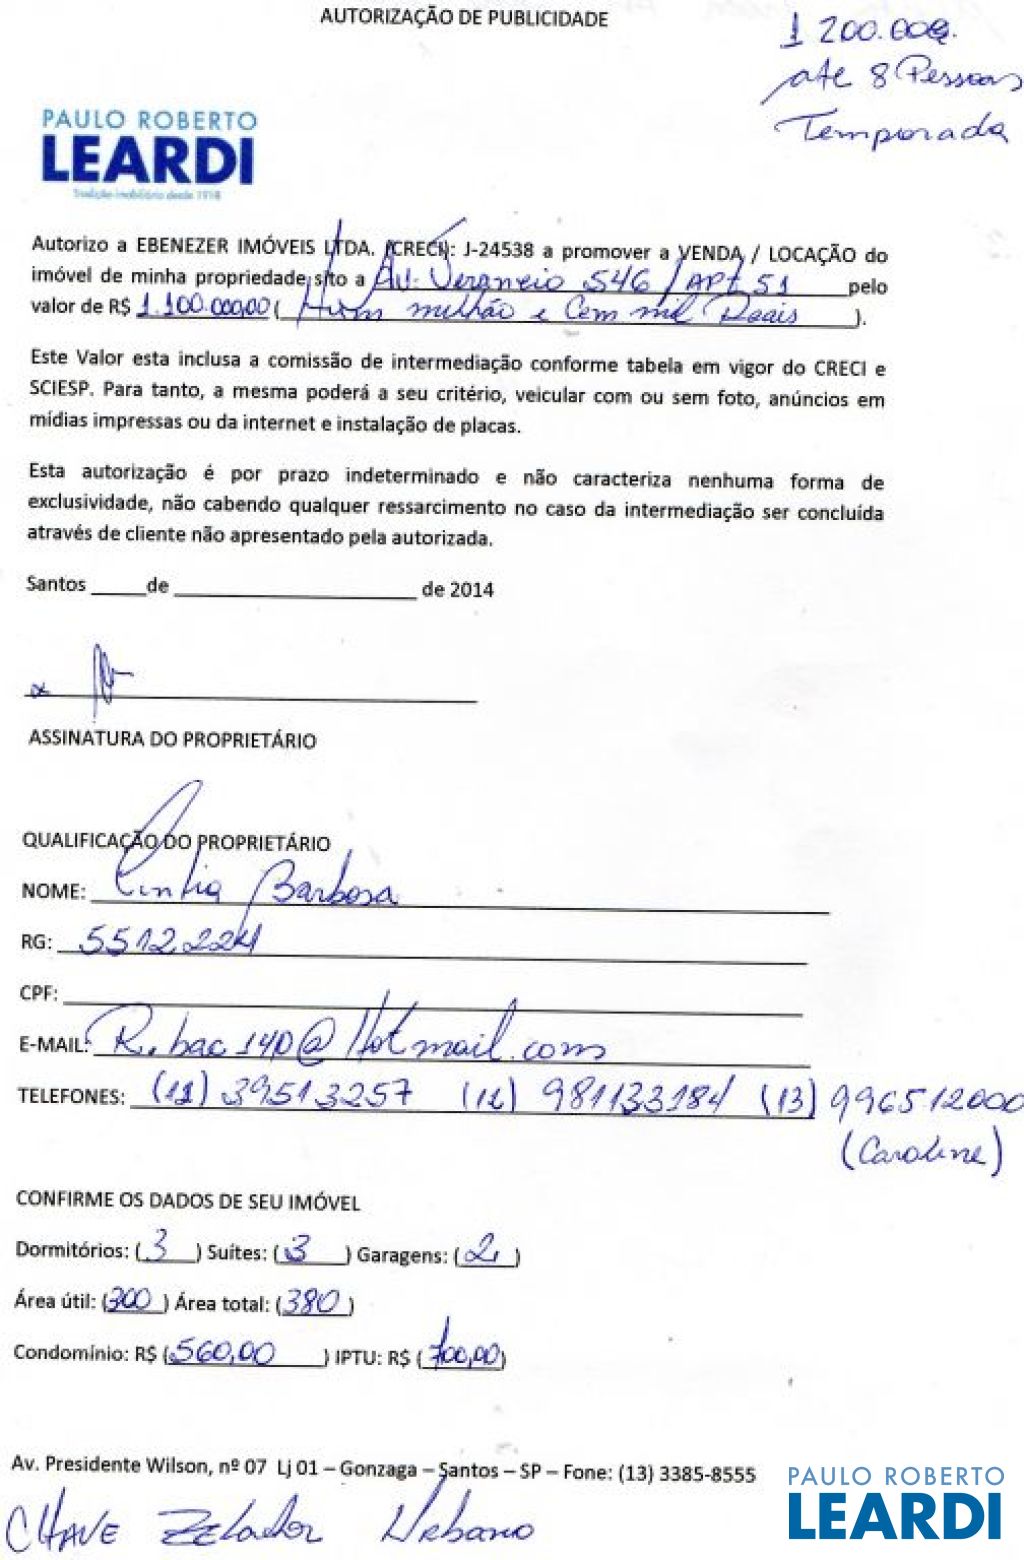 AUTORIZAÇÃO DE PUBLICIDADE
1 200.000.
até 8 Pessoas
Temporada
PAULO ROBERTO
LEARDI
Tradição imobiliária desde 1918
Autorizo a EBENEZER IMÓVEIS LTDA. (CRECI): J-24538 a promover a VENDA / LOCAÇÃO do
imóvel de minha propriedade sito a Av. Veraneio 546 / APt 51 pelo
valor de R$ 1.100.000,00 ( Hum milhão e Cem mil Reais ).
Este Valor esta inclusa a comissão de intermediação conforme tabela em vigor do CRECI e
SCIESP. Para tanto, a mesma poderá a seu critério, veicular com ou sem foto, anúncios em
mídias impressas ou da internet e instalação de placas.
Esta autorização é por prazo indeterminado e não caracteriza nenhuma forma de
exclusividade, não cabendo qualquer ressarcimento no caso da intermediação ser concluída
através de cliente não apresentado pela autorizada.
Santos _____de ______________________ de 2014
x
ASSINATURA DO PROPRIETÁRIO
QUALIFICAÇÃO DO PROPRIETÁRIO
NOME: Cintia Barbosa
RG: 55122224
CPF:
E-MAIL: R.bac140@Hotmail.com
TELEFONES: (11) 39513257 (11) 981133184 (13) 996512000
(Caroline)
CONFIRME OS DADOS DE SEU IMÓVEL
Dormitórios: ( 3 ) Suítes: ( 3 ) Garagens: ( 2 )
Área útil: (300 ) Área total: (380 )
Condomínio: R$ (560,00 ) IPTU: R$ ( 700,00)
Av. Presidente Wilson, nº 07 Lj 01 – Gonzaga – Santos – SP – Fone: (13) 3385-8555
CHAVE Zelador Urbano
PAULO ROBERTO
LEARDI